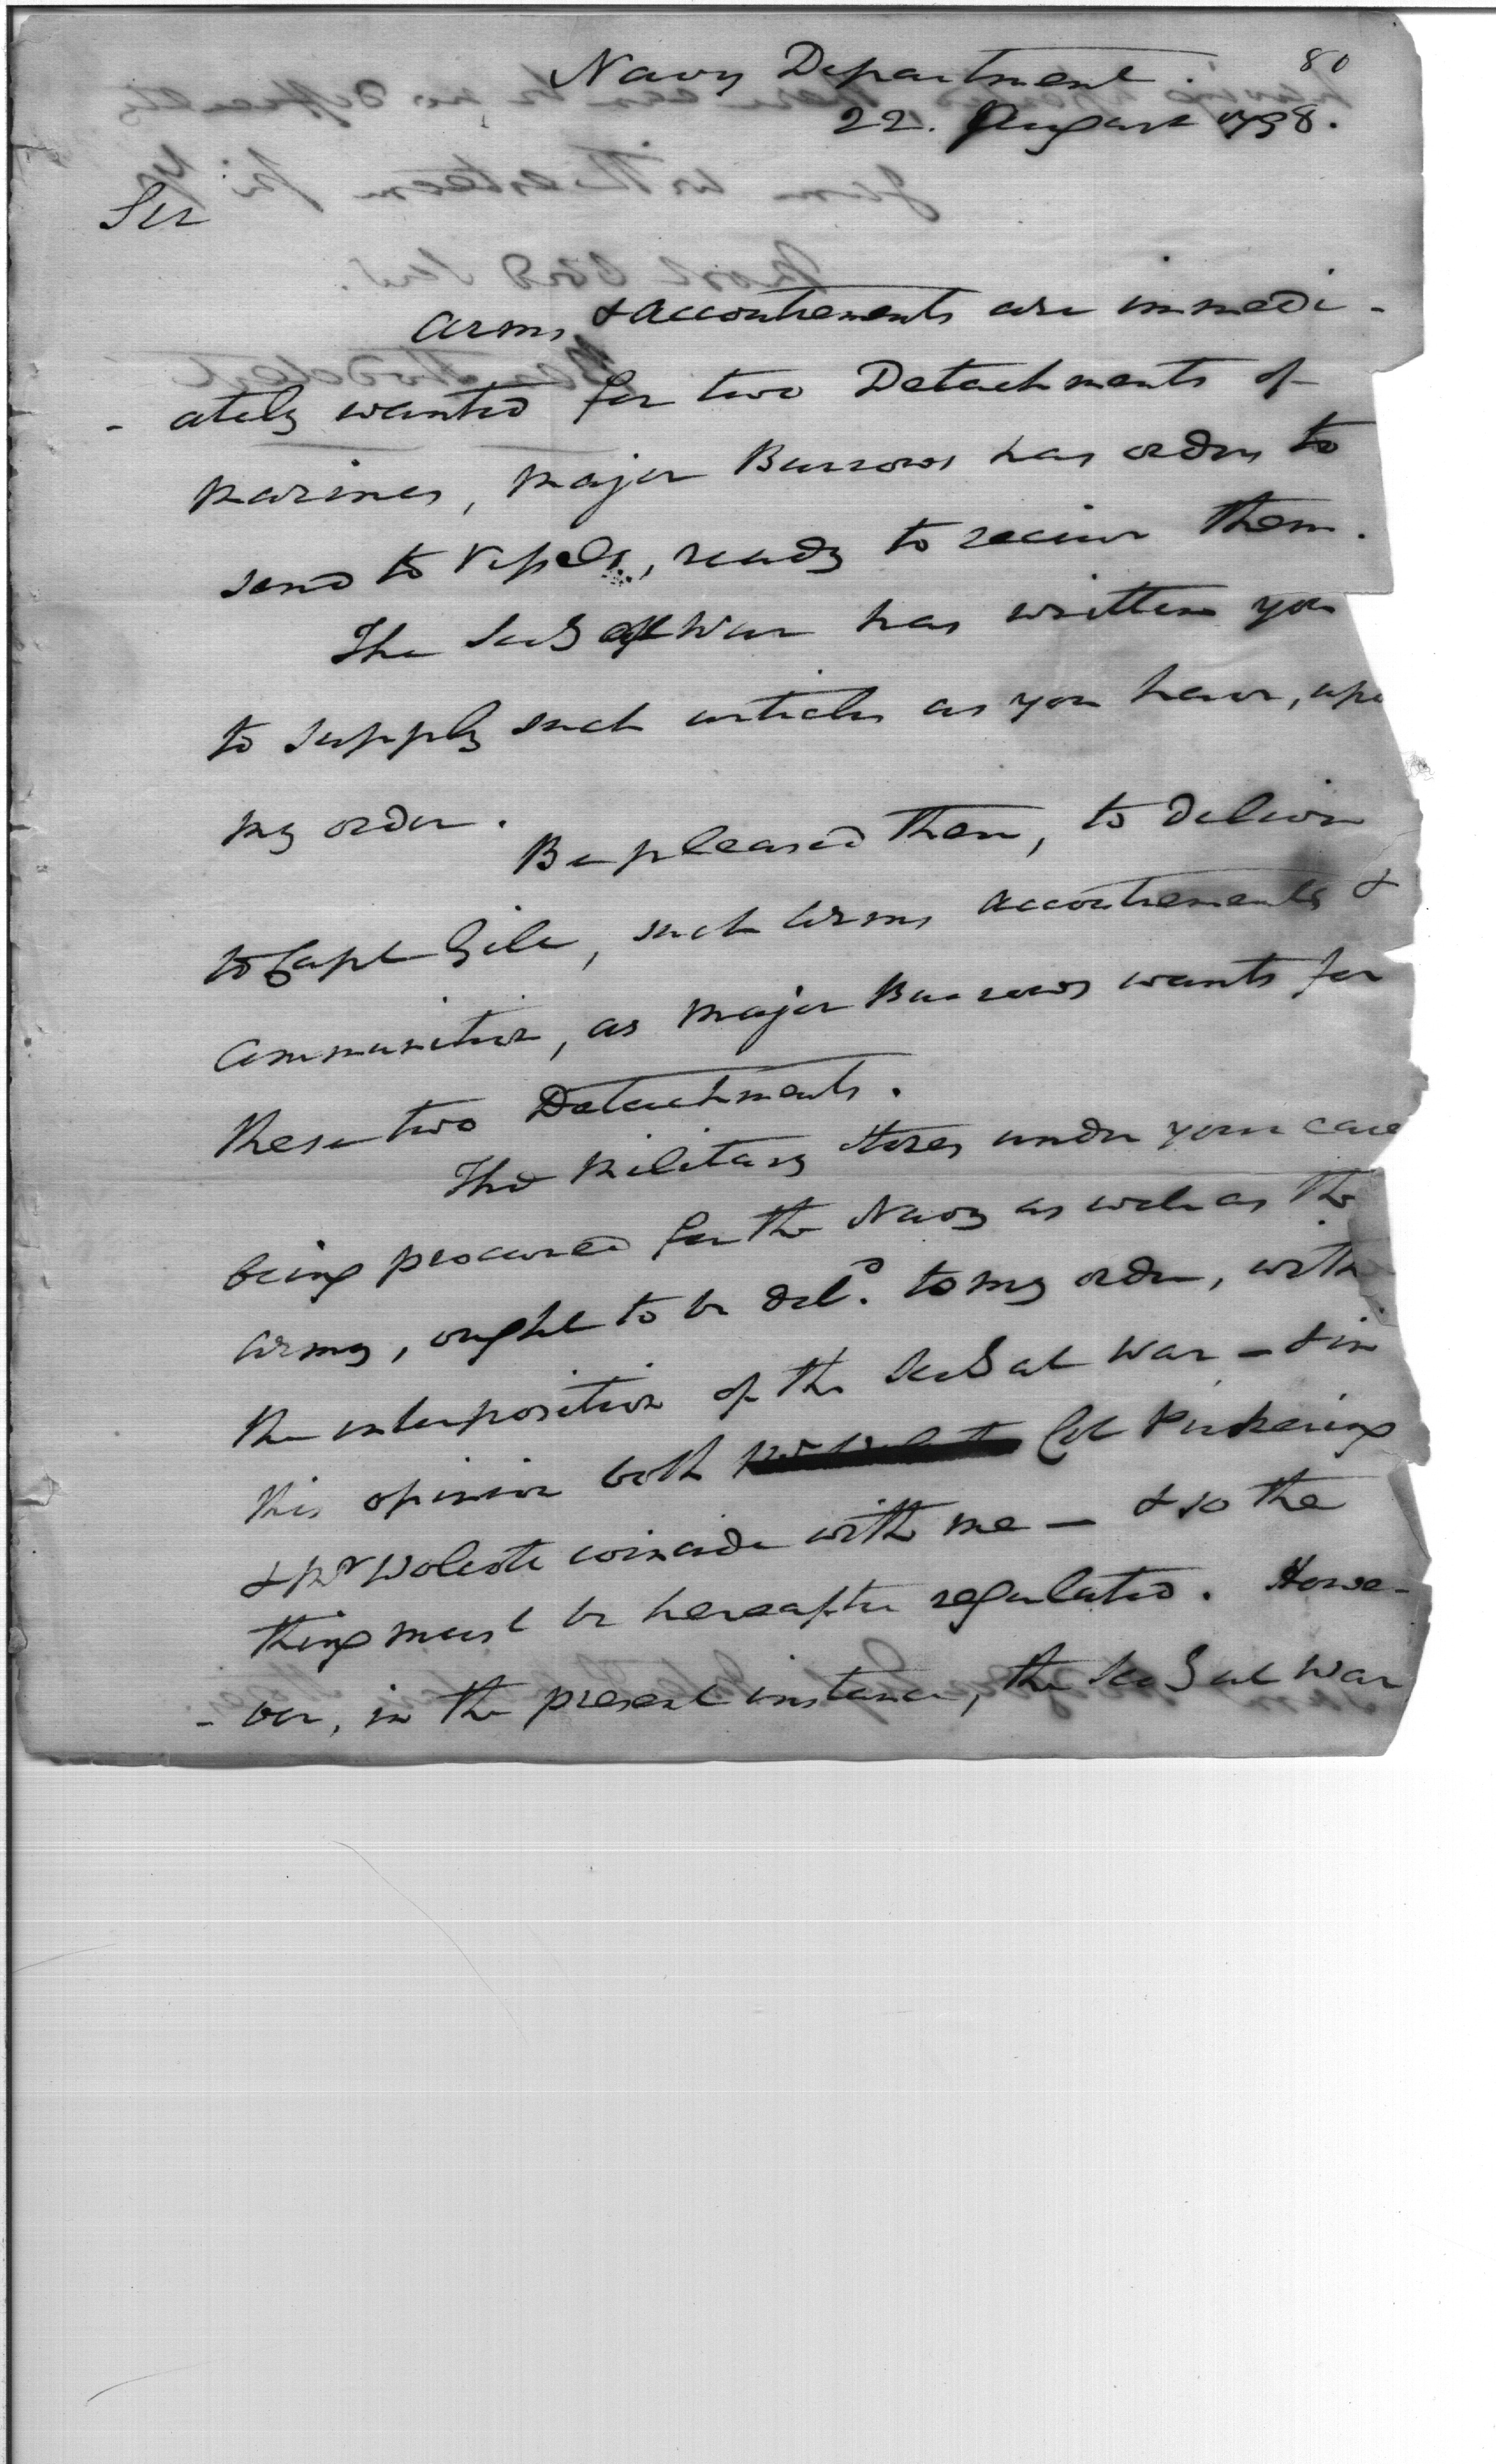 80
Navy Department.
22. August 1798.
Sir
Arms, & accoutrements are immedi-
-ately wanted for two Detachments of
Marines, Major Burrows has orders to
send to Vessels, ready to receive them.
The Secy of War has written you
to supply such articles as you have, upo
my order.
Be pleased then, to deliver
to Capt Gill, such Arms accoutrements &
Ammunition, as Major Burrows wants for
these two Detachments.
The Military Stores under your care
being procured for the Navy as well as the
Army, ought to be deld. to my order, with
the interposition of the Secy at War — & in
this opinion both Col Pickering
& Mr Wolcott coincide with me — & so the
thing must be hereafter regulated. Howe-
-ver, in the present instance, the Secy at War